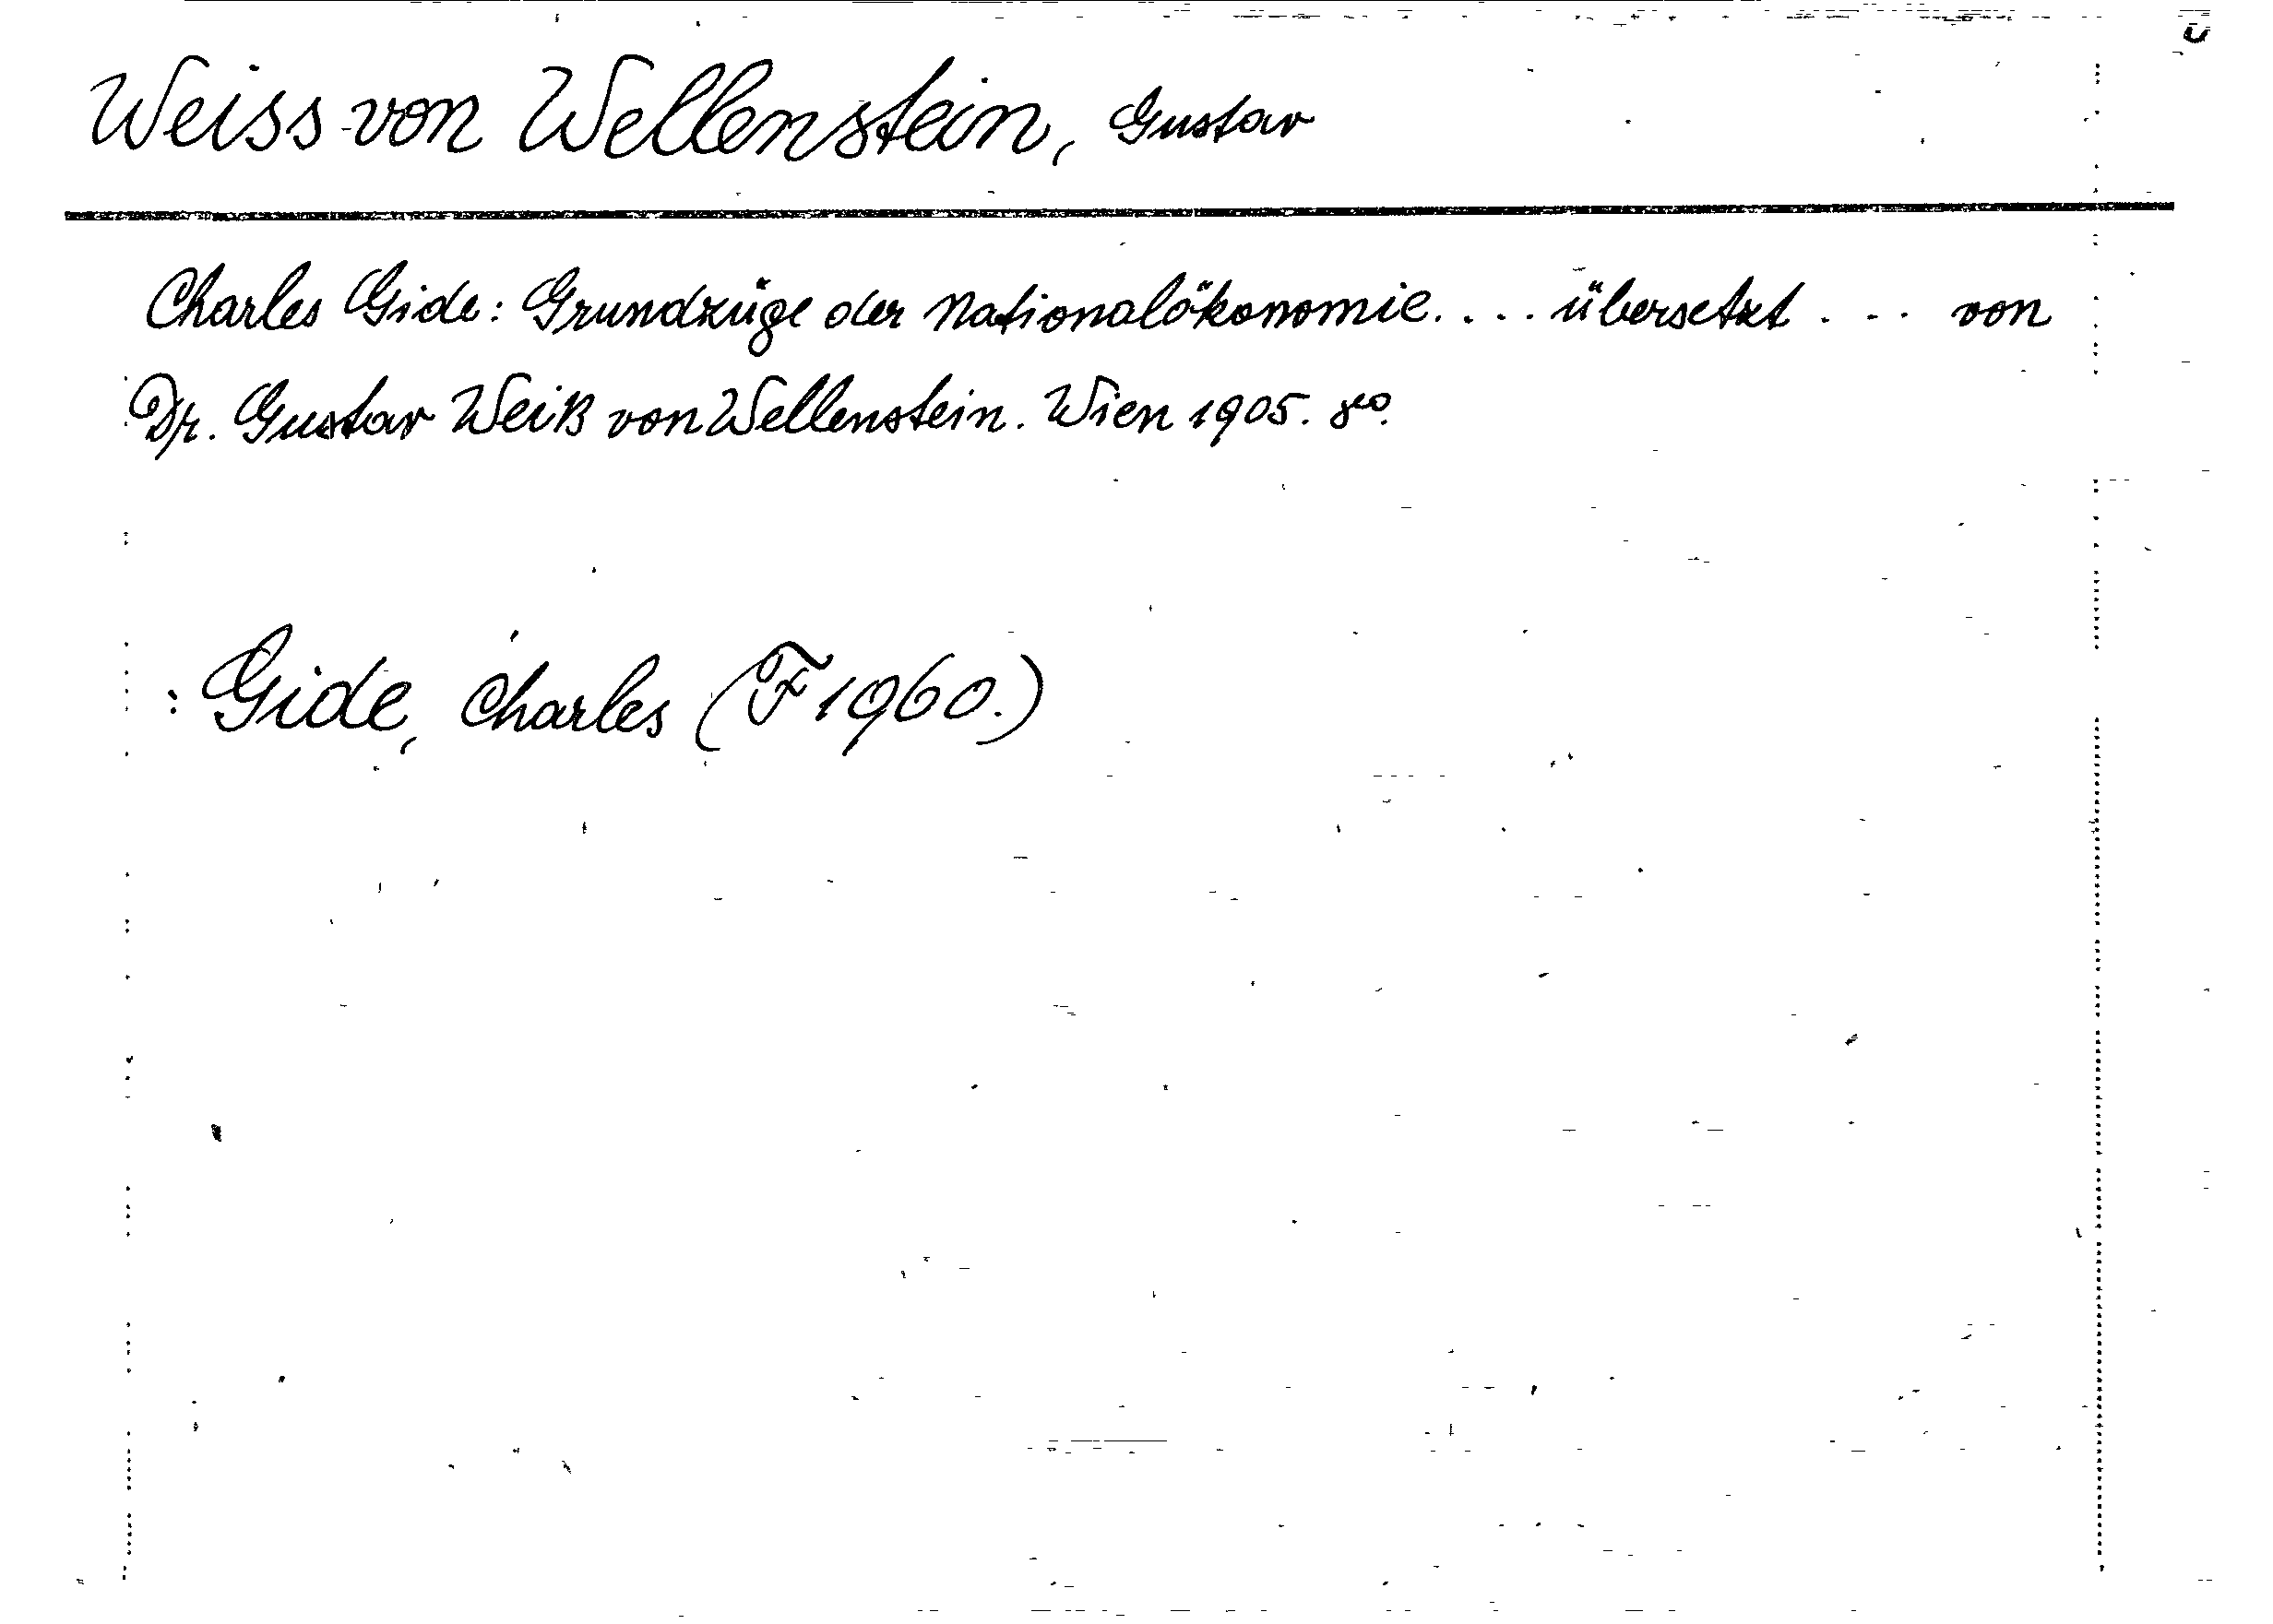 Weiss von Wellenstein, Gustav
Charles Gide: Grundzüge der Nationalökonomie.... übersetzt ... von
Dr. Gustav Weiß von Wellenstein. Wien 1905. 8o.
: Gide, Charles (F 1960.)